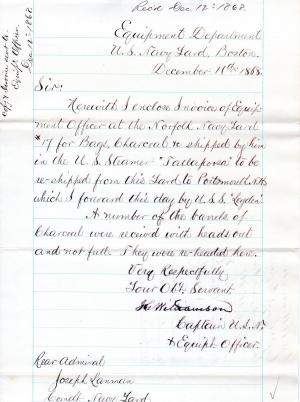 Rec'd Dec 12th 1868.
Copy & Invoice sent to
Equip't Officer
Dec 12th 1868.
Equipment Department
U.S. Navy Yard, Boston.
December 11th 1868.
Sir:
Herewith I enclose Invoice of Equip-
ment Officer at the Norfolk Navy Yard
#17 for Bags, Charcoal &c shipped by him
in the U.S. Steamer "Tallapoosa" to be
re-shipped from this Yard to Portsmouth N.H.
which I forward this day by U.S.S. "Leyden"
A number of the barrels of
Charcoal were received with heads out
and not full. They were re-headed here.
Very Respectfully
Your Obt. Servant
Williamson
Captain U.S.N.
& Equipt. Officer.
Rear Admiral
Joseph Lanman
Comdt. Navy Yard.